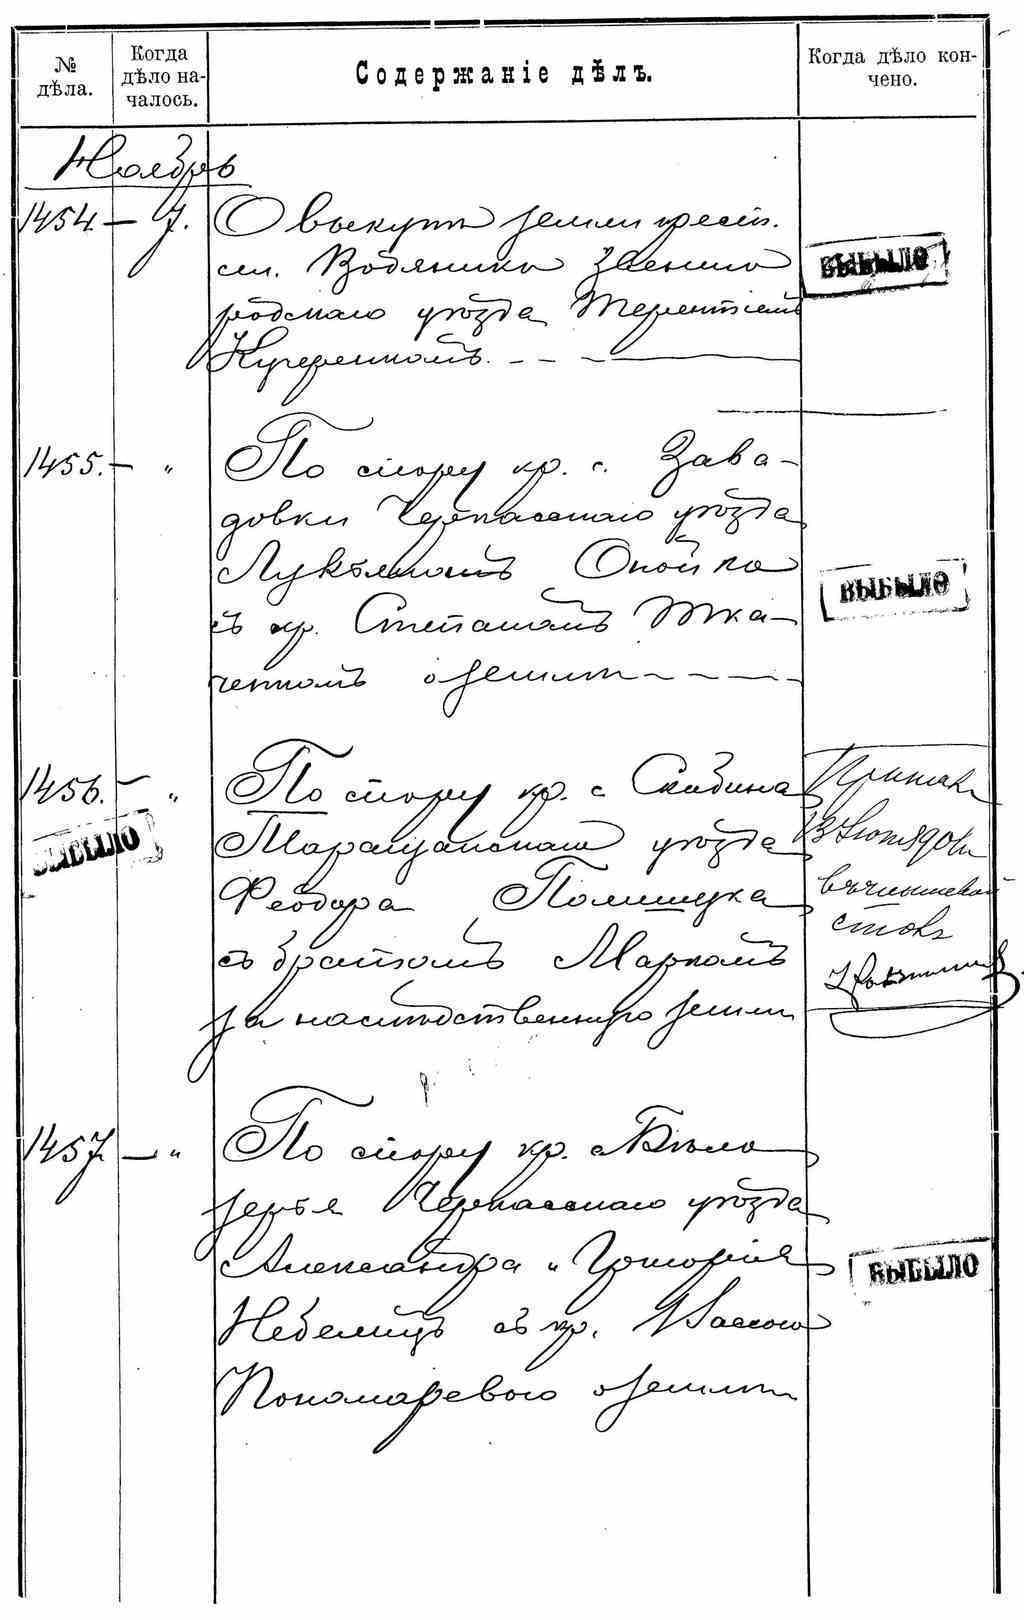 № дѣла.
Когда дѣло на-
чалось.
Содержаніе дѣлъ.
Когда дѣло кон-
чено.
Ноябрь
1454 — 7. О выкупѣ земли крест.
сел. Водяника Звениго
родскаго уѣзда Терентіемъ
Кучеренкомъ. — — —
ВЫБЫЛО
1455. — „ По спору кр. с. Зава-
довки Черкасскаго уѣзда
Лукьяномъ
съ кр. Степаномъ Тка-
ченкомъ о землѣ — — — —
ВЫБЫЛО
1456. — „ По спору кр. с. Скибина
Таращанскаго уѣзда
Феодора Полищука
съ братомъ Маркомъ
за наслѣдственную землю
ВЫБЫЛО
1457. — „ По спору кр. с. Бѣло
зерья Черкасскаго уѣзда
Александра и Григорія
Небелицъ съ кр. Вассою
Пономаревою о землѣ
ВЫБЫЛО